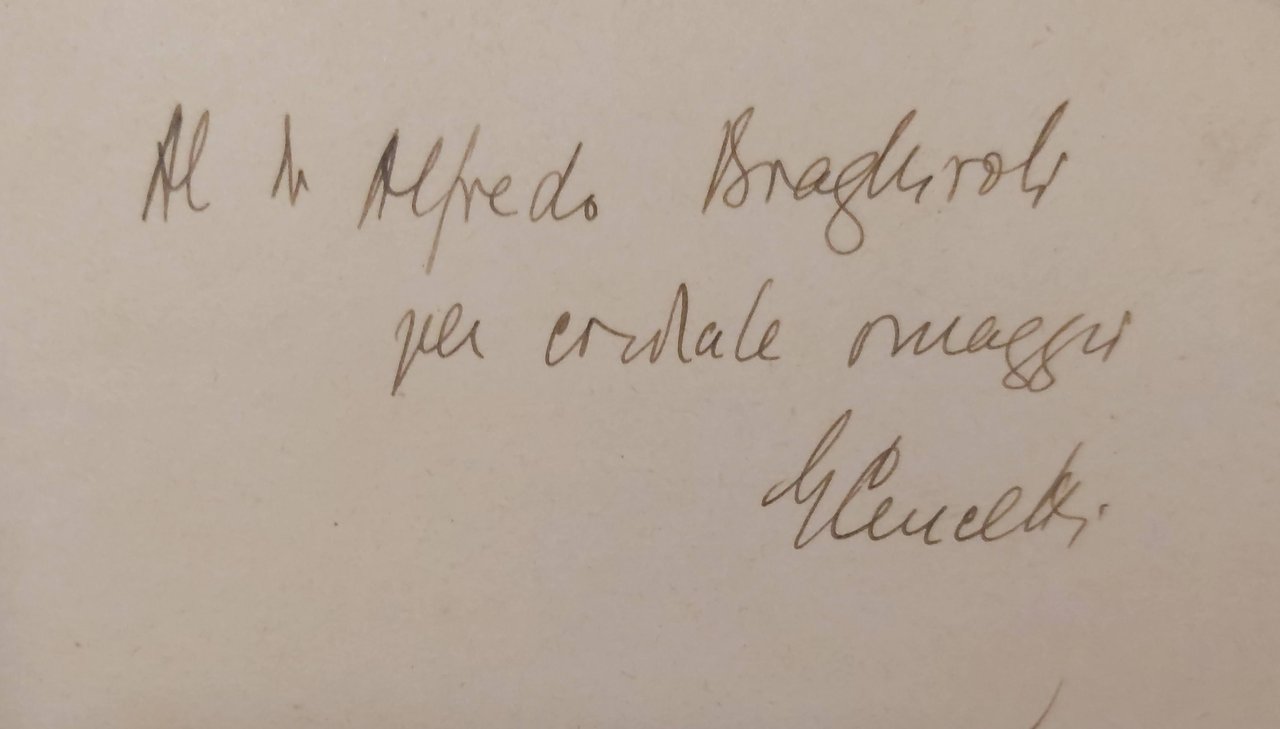 Al Dr Alfredo Braghiroli
per cordiale omaggio
GCencetti